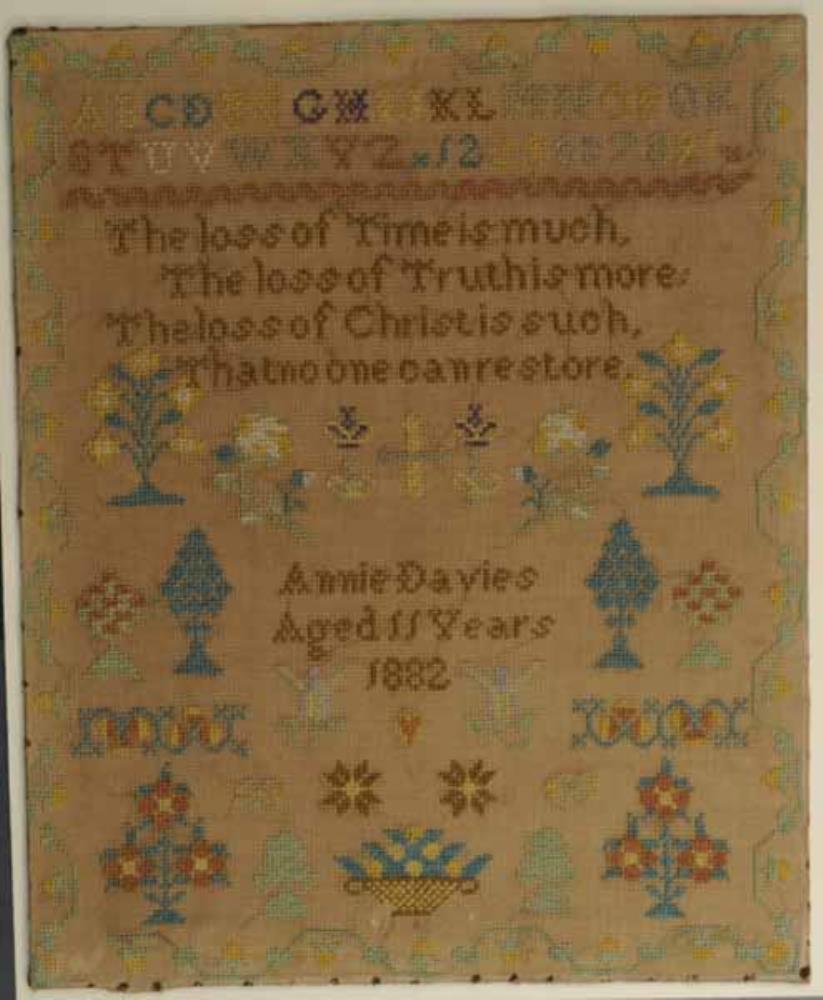 A B C D E F G H I J K L M N O P Q R
S T U V W X Y Z 1 2
The loss of Time is much,
The loss of Truth is more;
The loss of Christ is such,
That no one can restore.
Annie Davies
Aged 11 Years
1882